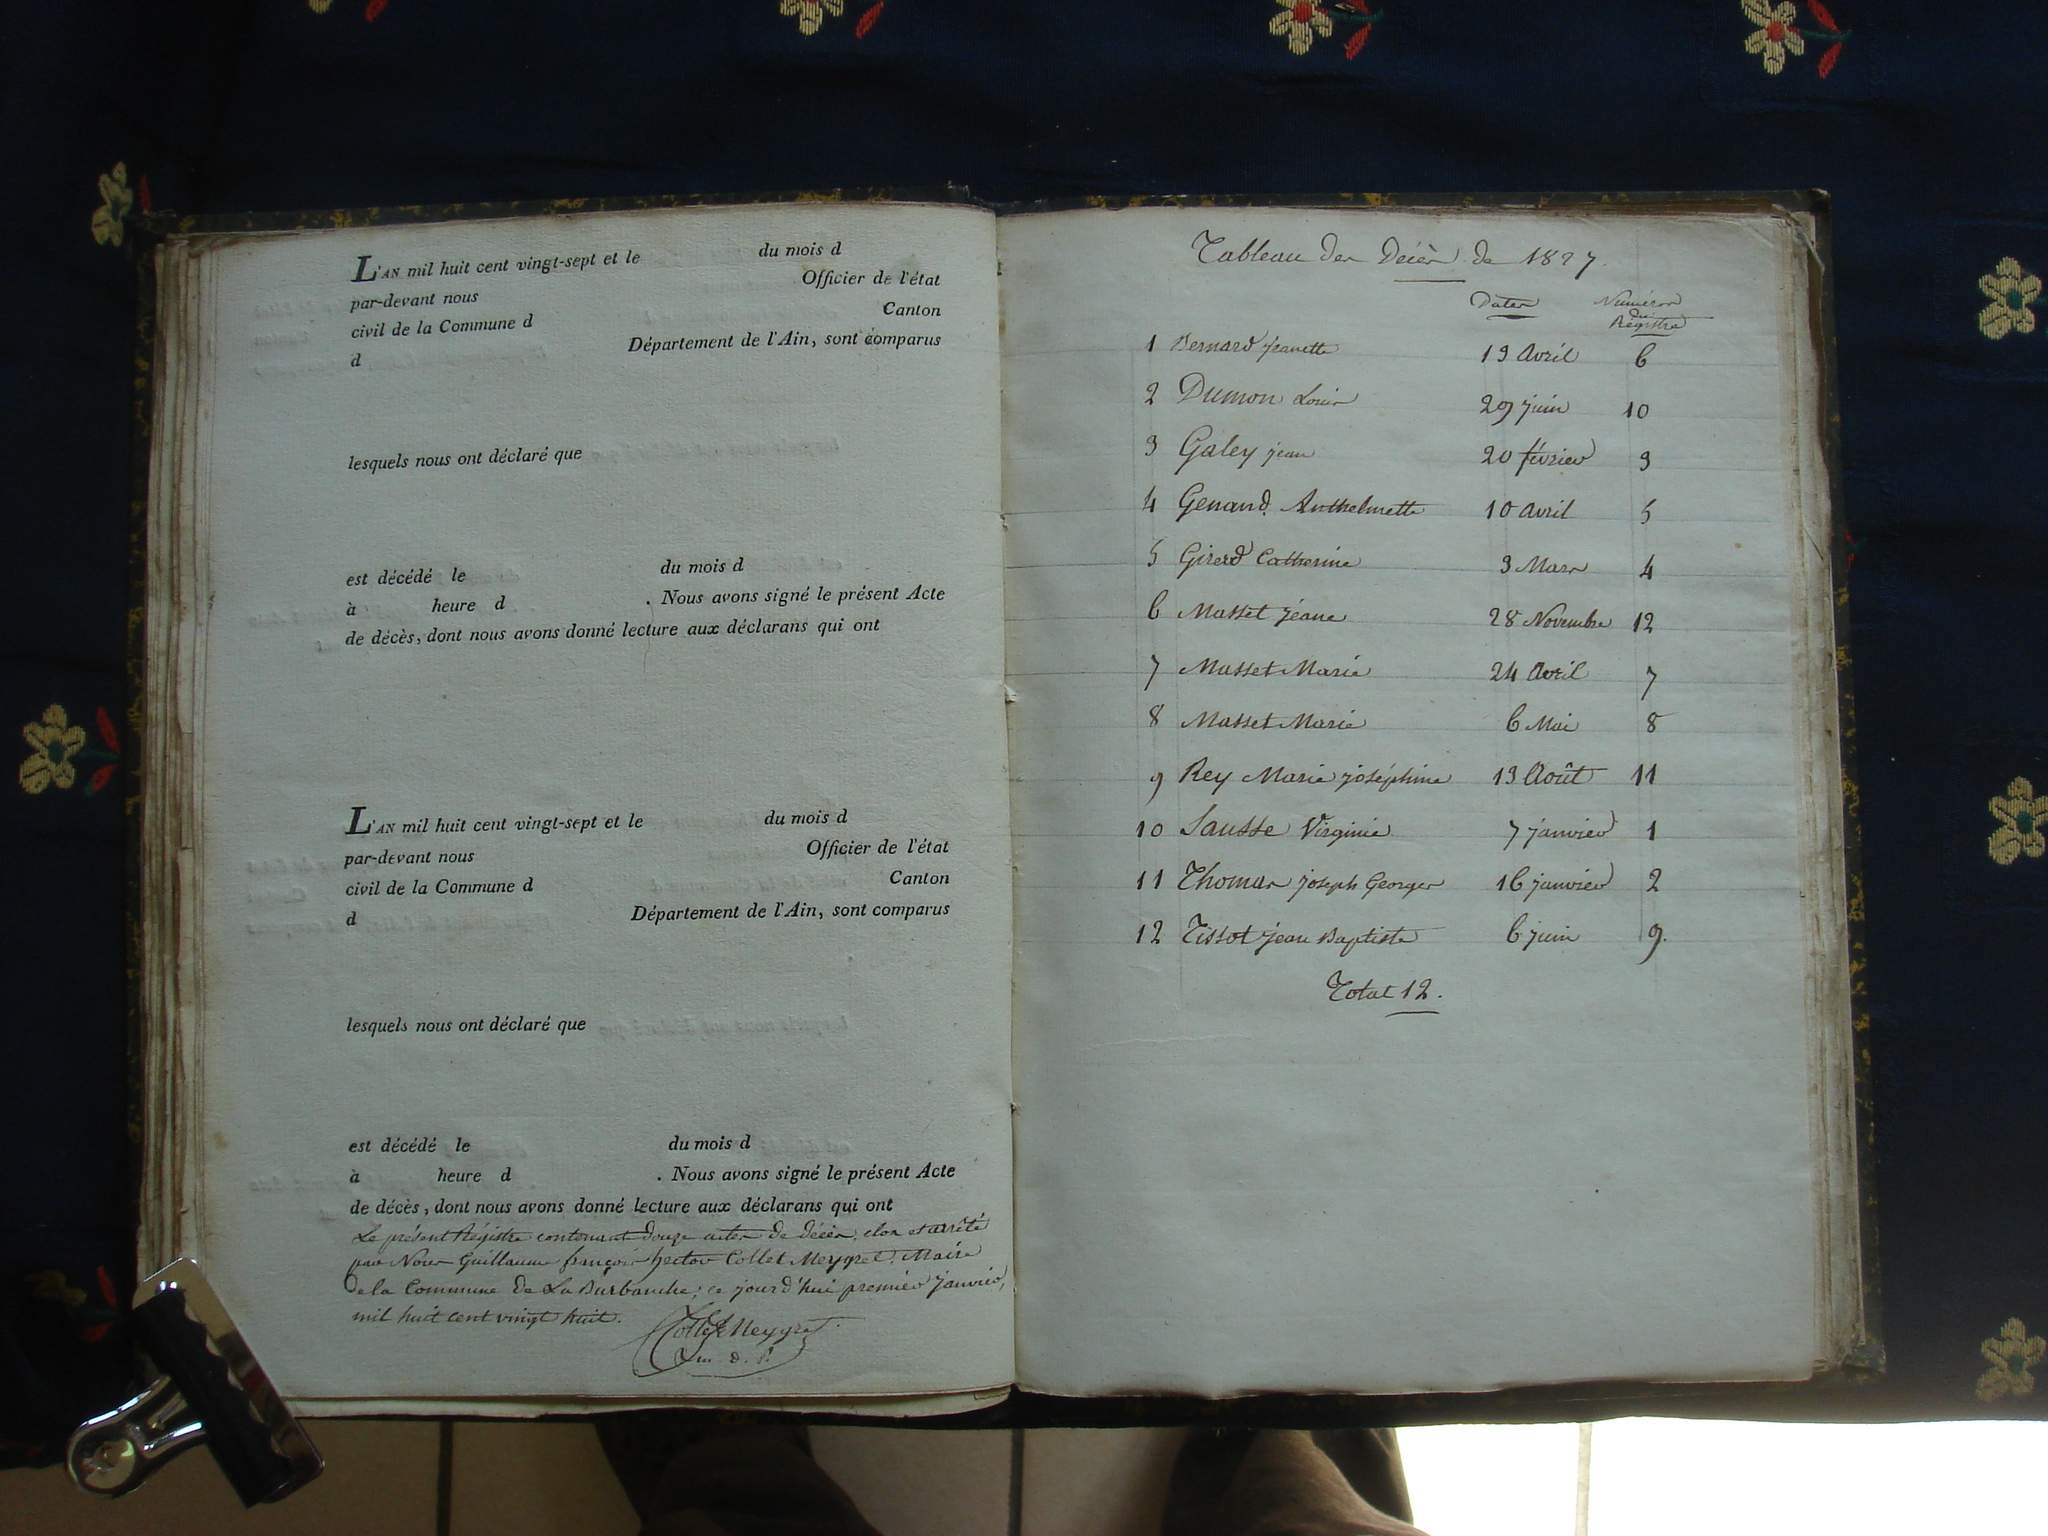 L'AN mil huit cent vingt-sept et le du mois d
par-devant nous Officier de l'état
civil de la Commune d Canton
d Département de l'Ain, sont comparus
lesquels nous ont déclaré que
est décédé le du mois d
à heure d . Nous avons signé le présent Acte
de décès, dont nous avons donné lecture aux déclarans qui ont
L'AN mil huit cent vingt-sept et le du mois d
par-devant nous Officier de l'état
civil de la Commune d Canton
d Département de l'Ain, sont comparus
lesquels nous ont déclaré que
est décédé le du mois d
à heure d . Nous avons signé le présent Acte
de décès, dont nous avons donné lecture aux déclarans qui ont
Le présent Régistre contenant douze actes de décès, clos et arrêté
par Nous Guillaume françois hector Collet Meygret, Maire
de la Commune de La Burbanche; ce jourd'hui premier janvier,
mil huit cent vingt huit.
Collet Meygret
Tableau des Décès de 1827
Dates Numéros
du
Régistre
1 Bernard jeanette 19 Avril 6
2 Dumon Louis 29 juin 10
3 Galey jean 20 février 3
4 Genand Anthelmette 10 Avril 5
5 Girerd Catherine 3 Mars 4
6 Masset jéane 28 Novembre 12
7 Masset Marie 24 Avril 7
8 Masset Marie 6 Mai 8
9 Rey Marie joséphine 13 Août 11
10 Sausse Virginie 7 janvier 1
11 Thomas joseph Georges 16 janvier 2
12 Tissot jean Baptiste 6 juin 9.
Total 12.